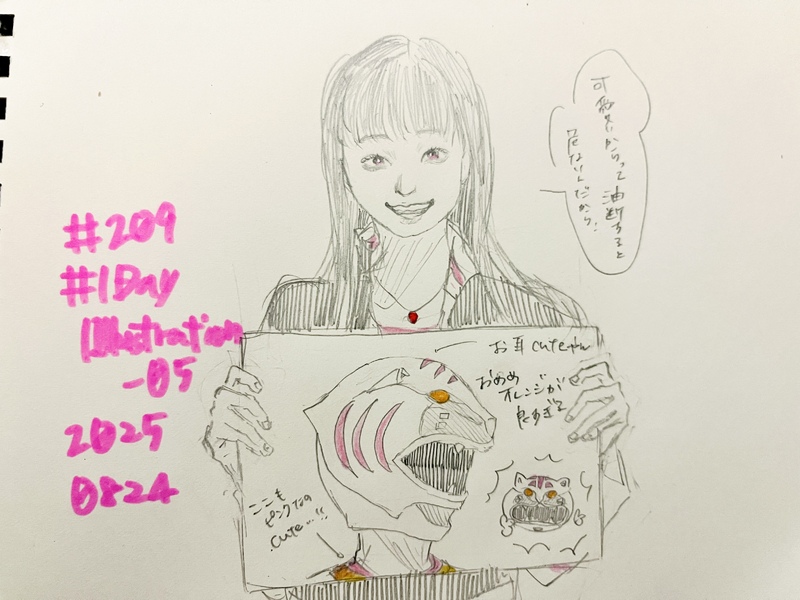 #209
#1Day
Illustration
-05
2025
0824
可愛いからって油断すると
危ないんだから!
お耳cuteやん
おめめ
オレンジが
良すぎて
ここも
ピンクなの
cute…!!